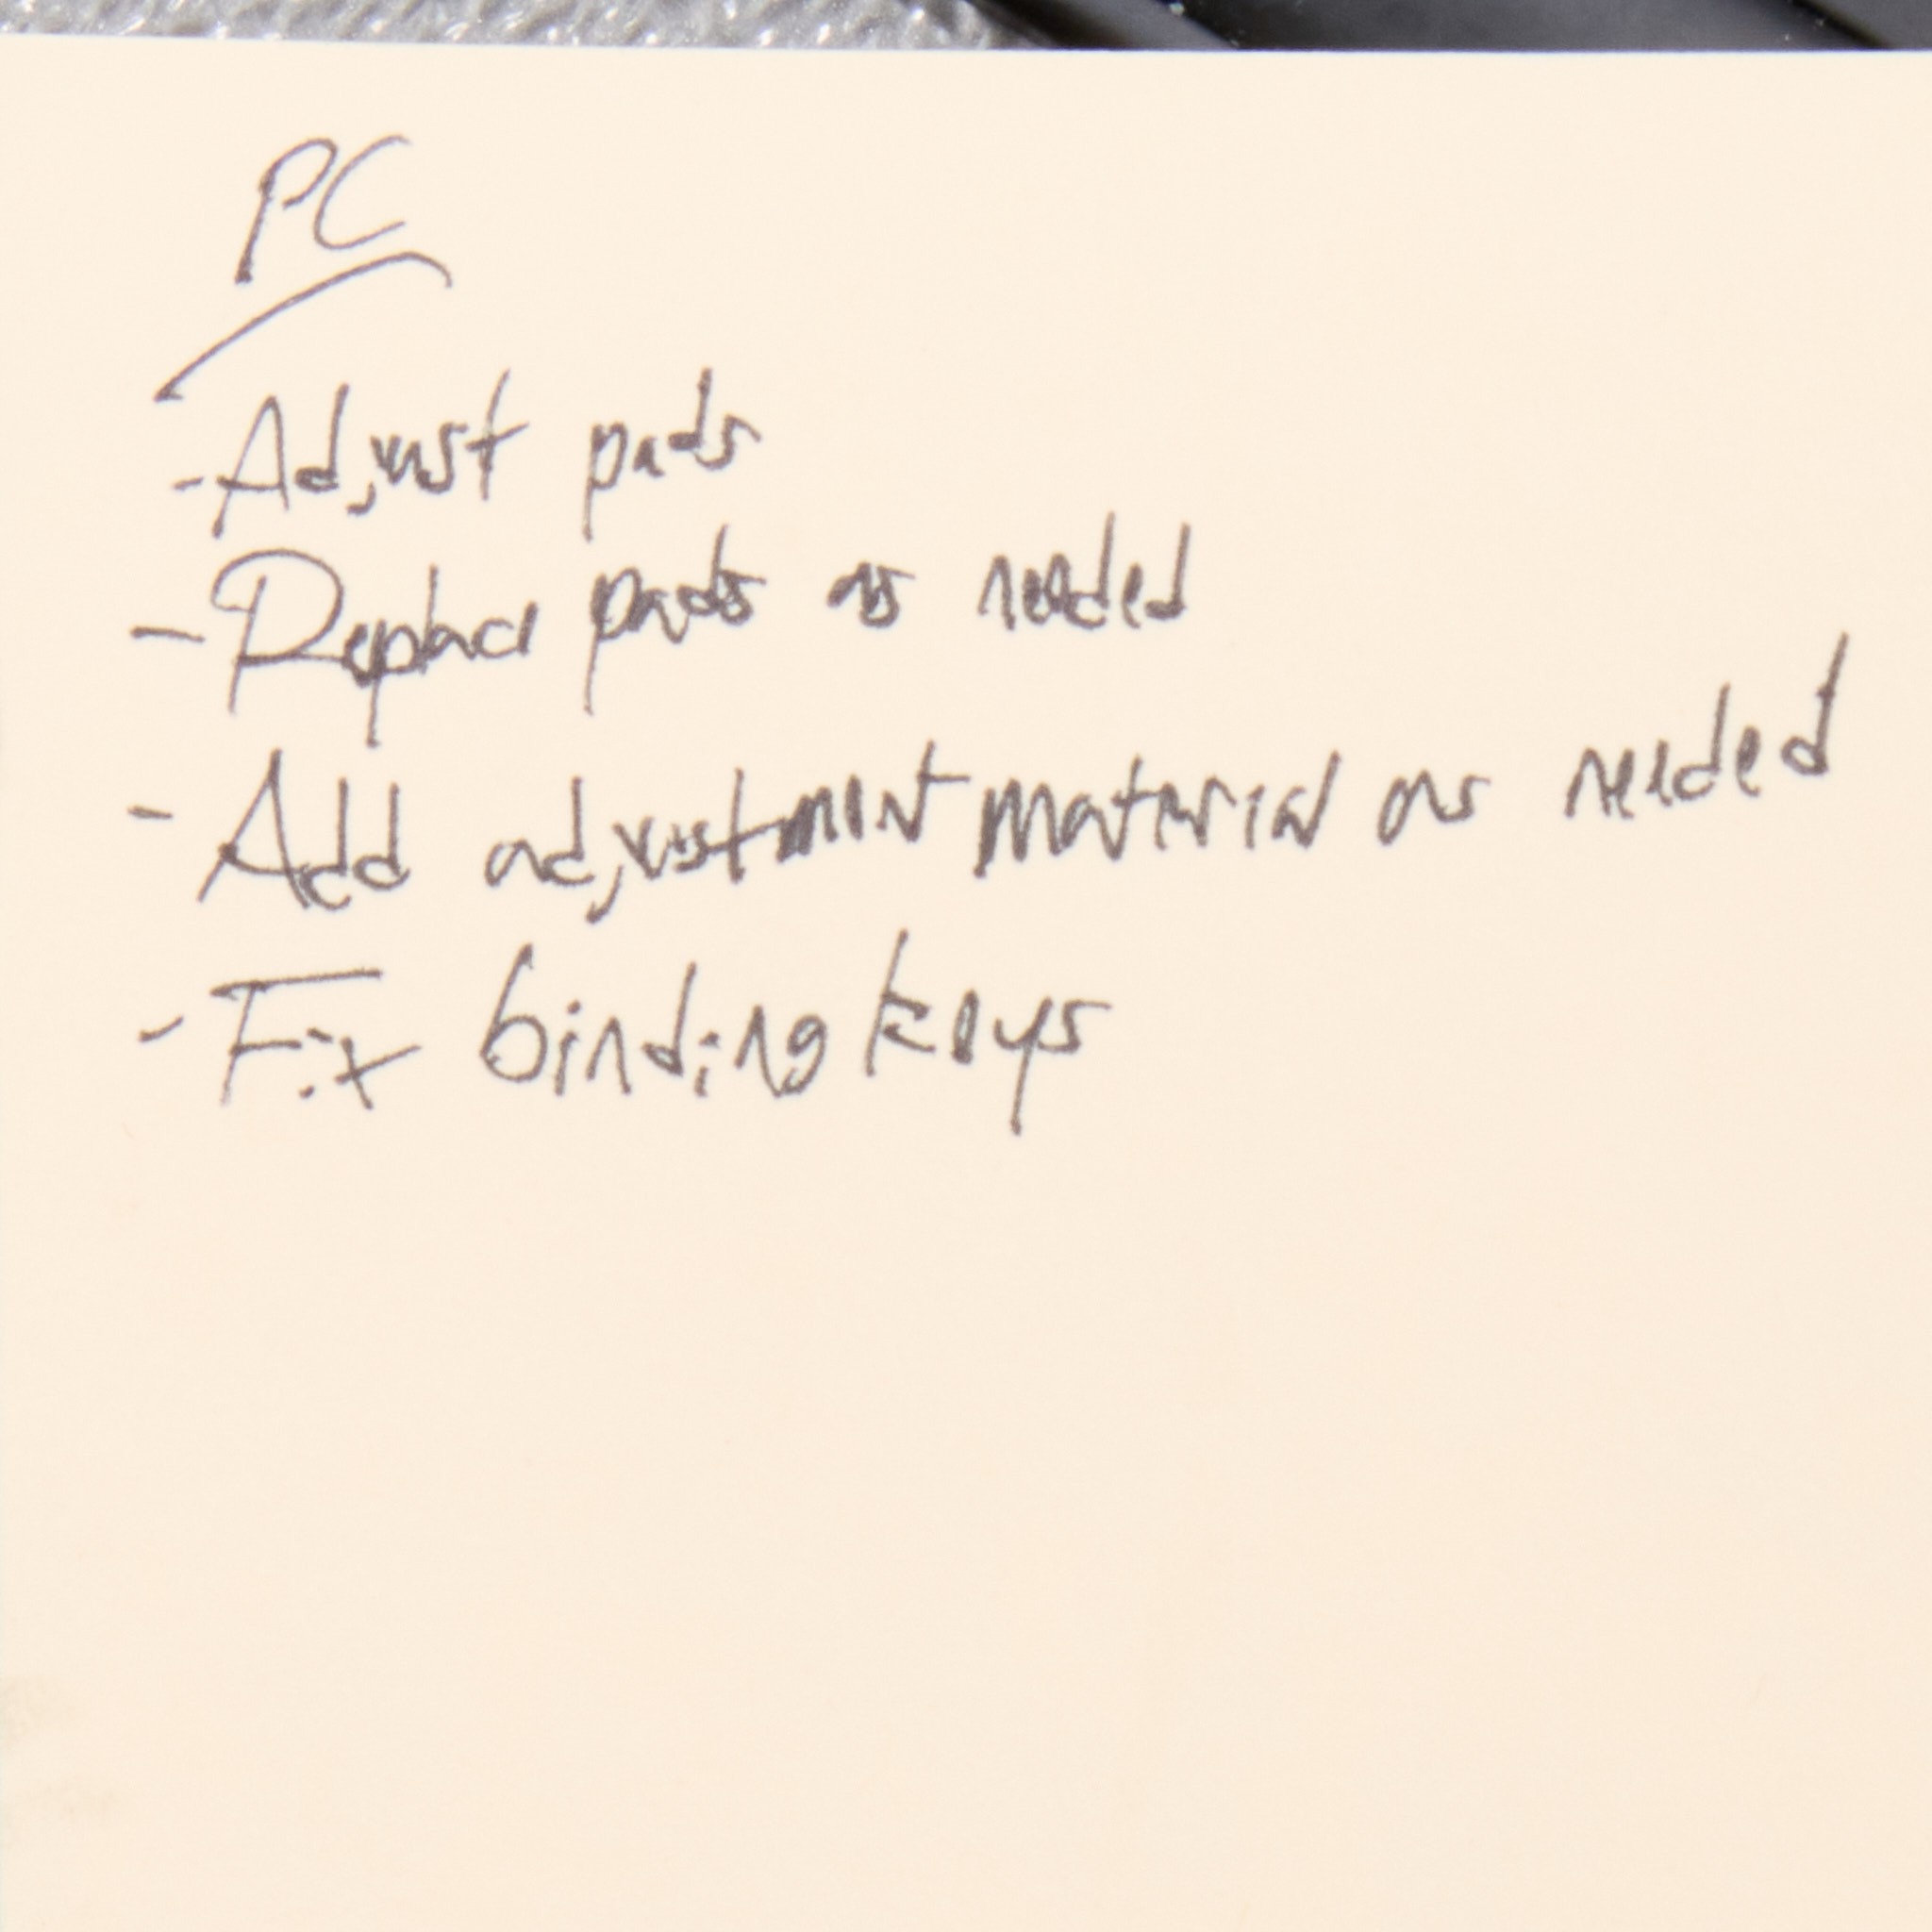 PC
- Adjust pads
- Replace pads as needed
- Add adjustment material as needed
- Fix binding keys